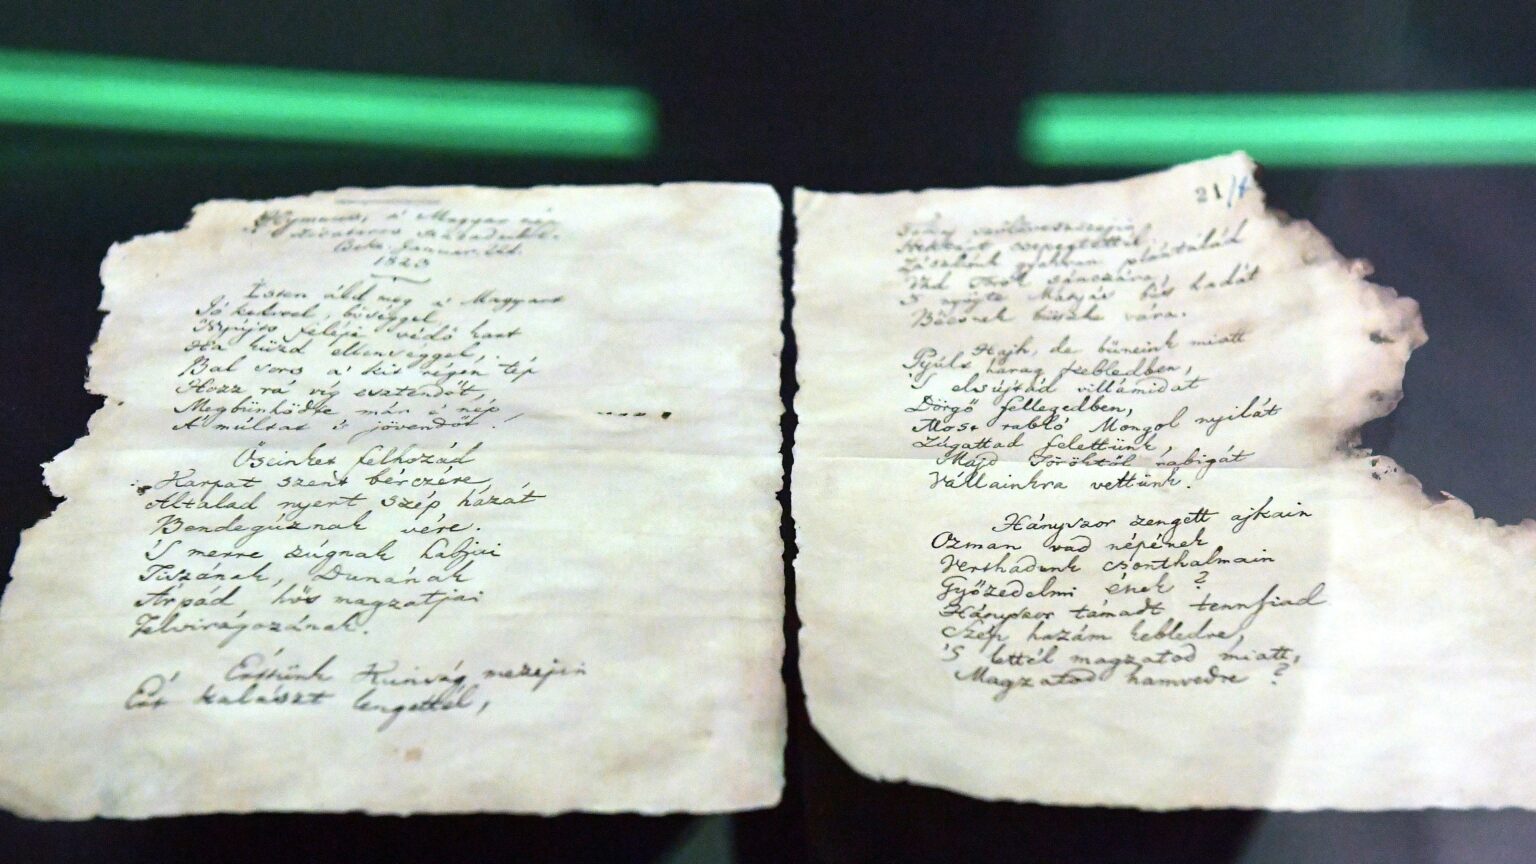 Hymnus, a' Magyar nép
zivataros századaiból.
Januar.
1823
Isten áldd meg a' Magyart
Jó kedvvel, bőséggel,
Nyújts feléje védő kart
Ha küzd ellenséggel,
Bal sors a' kit régen tép
Hozz rá víg esztendőt,
Megbünhödte már e' nép
A' múltat 's jövendőt.
Őseinket felhozád
Kárpát szent bérczére,
Általad nyert szép hazát
Bendegúznak vére.
'S merre zúgnak habjai
Tiszának, Dunának
Árpád hős magzatjai
Felvirágozának.
Értünk Kunság mezején
Ért kalászt lengettél,
21/
szőlővesszején
Nektárt csepegtettél,
Zászlónk gyakran plántálád
Vad Török sánczára,
'S nyögte Mátyás bús hadát
Bécsnek büszke vára.
Hajh, de bűneink miatt
Gyúlt harag kebledben,
'S elsújtád villámidat
Dörgő fellegedben,
Most rabló Mongol nyilát
Zúgattad felettünk
Majd Töröktől rabigát
Vállainkra vettünk.
Hányszor zengett ajkain
Ozman vad népének
Vert hadunk csonthalmain
Győzedelmi ének?
Hányszor támadt tennfiad
Szép hazám kebledre,
'S lettél magzatod miatt,
Magzatod hamvedre?